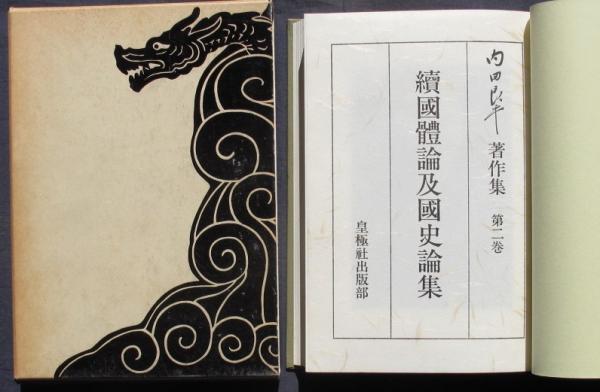 内田良平 著作集 第二巻
續國體論及國史論集
皇極社出版部